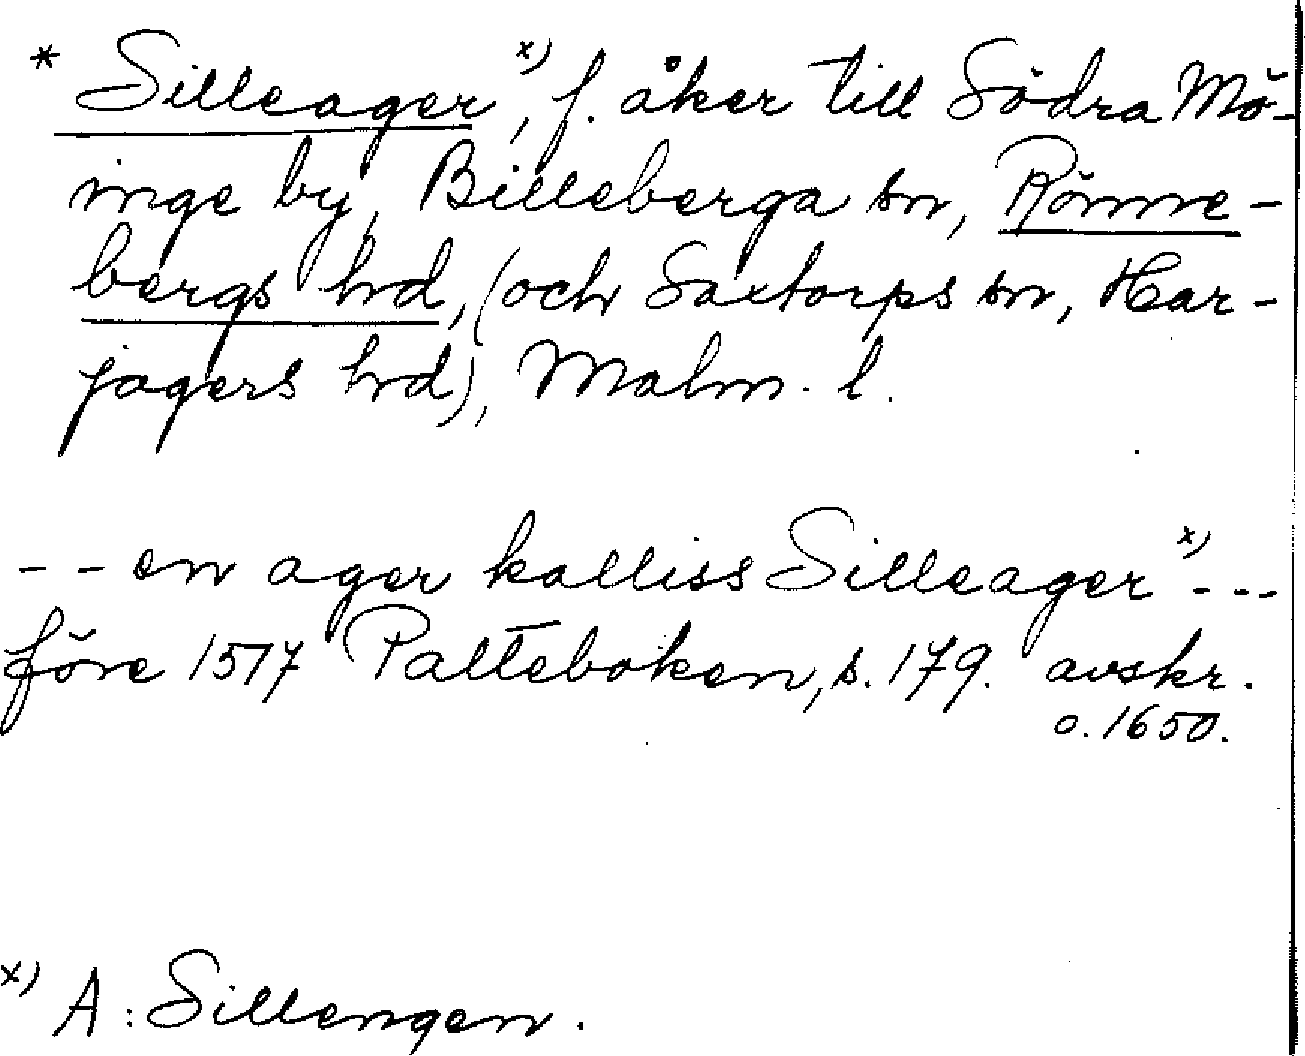 * Silleager x), f. åker till Södra Mö-
inge by, Billeberga sn, Rönne-
bergs hd, (och Saxtorps sn, Har-
jagers hd), Malm. l.
-- en ager kalliss Silleager x) ---
före 1517 Palteboken, s. 179. avskr.
o. 1650.
x) A: Sillengen.